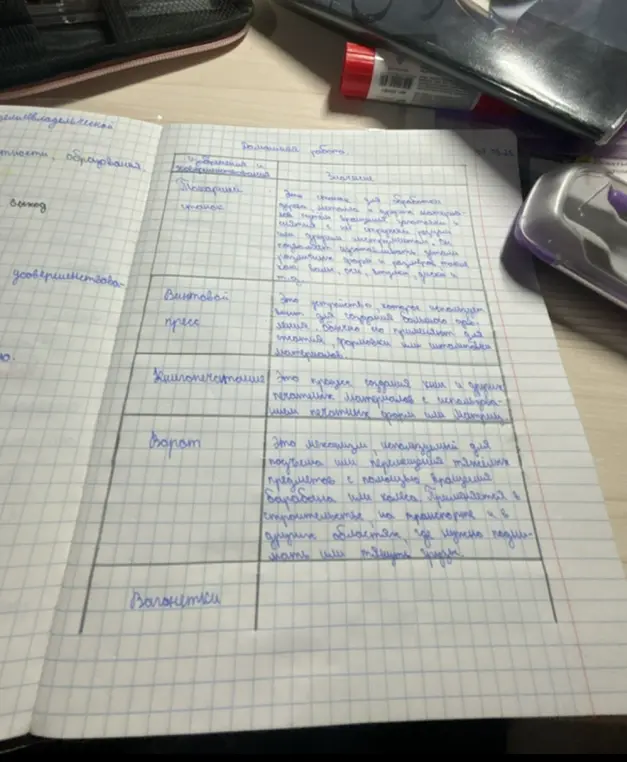 Домашняя работа.
изобретения и
усовершенствования
Значение
Токарный
станок
Это станок для обработки
вращения заготовки и
снятия с неё стружки резцом
или другим инструментом. Он
позволяет изготавливать детали
различных форм и размеров такие
как валы, оси, втулки, диски и
т.д.
Винтовой
пресс
Это устройство, которое использует
винт для создания большого дав-
ления. Обычно его применяют для
сжатия, формовки или штамповки
материалов.
Книгопечатание
Это процесс создания книг и других
печатных материалов с использова-
нием печатных форм или матриц.
Ворот
Это механизм, используемый для
подъема или перемещения тяжёлых
предметов с помощью вращения
барабана или колеса. Применяется в
строительстве, на транспорте и в
других областях, где нужно подни-
мать или тянуть грузы.
Вагонетки
выход
усовершенствова-